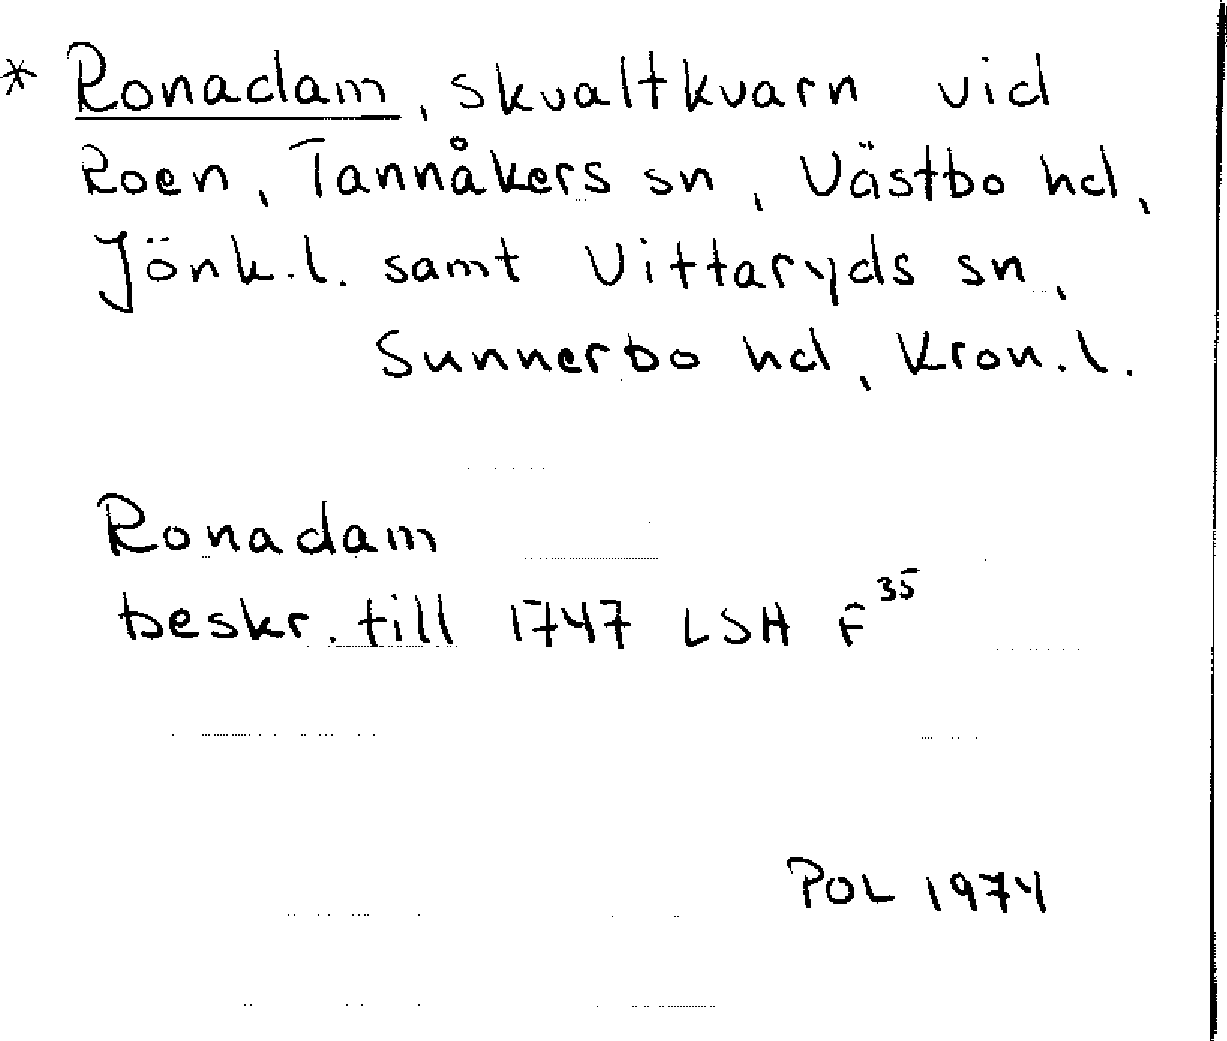 * Ronadam, skvaltkvarn vid
Roen, Tannåkers sn, Västbo hd,
Jönk.l. samt Vittaryds sn,
Sunnerbo hd, Kron.l.
Ronadam
beskr. till 1747 LSH F³⁵
POL 1974